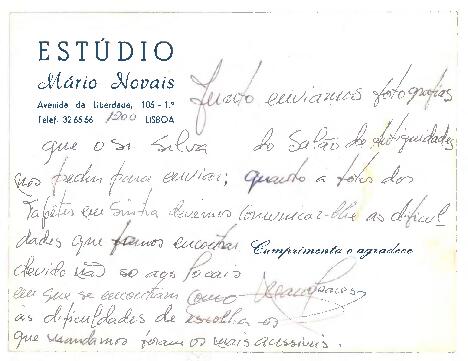 ESTÚDIO
Mário Novais
Avenida da Liberdade, 105-1.º
Telef. 326556 1200 LISBOA
Junto enviamos fotografias
que o sr Silva do Salão de Antiguidades
nos pediu para enviar; quanto a fotos dos
Tapetes em Sintra devemos comunicar-lhe as dificul-
dades que fomos encontrar
Cumprimenta e agradece
devido não só aos locais
em que se encontram como
as dificuldades de escolha os
que mandamos foram os mais acessiveis.